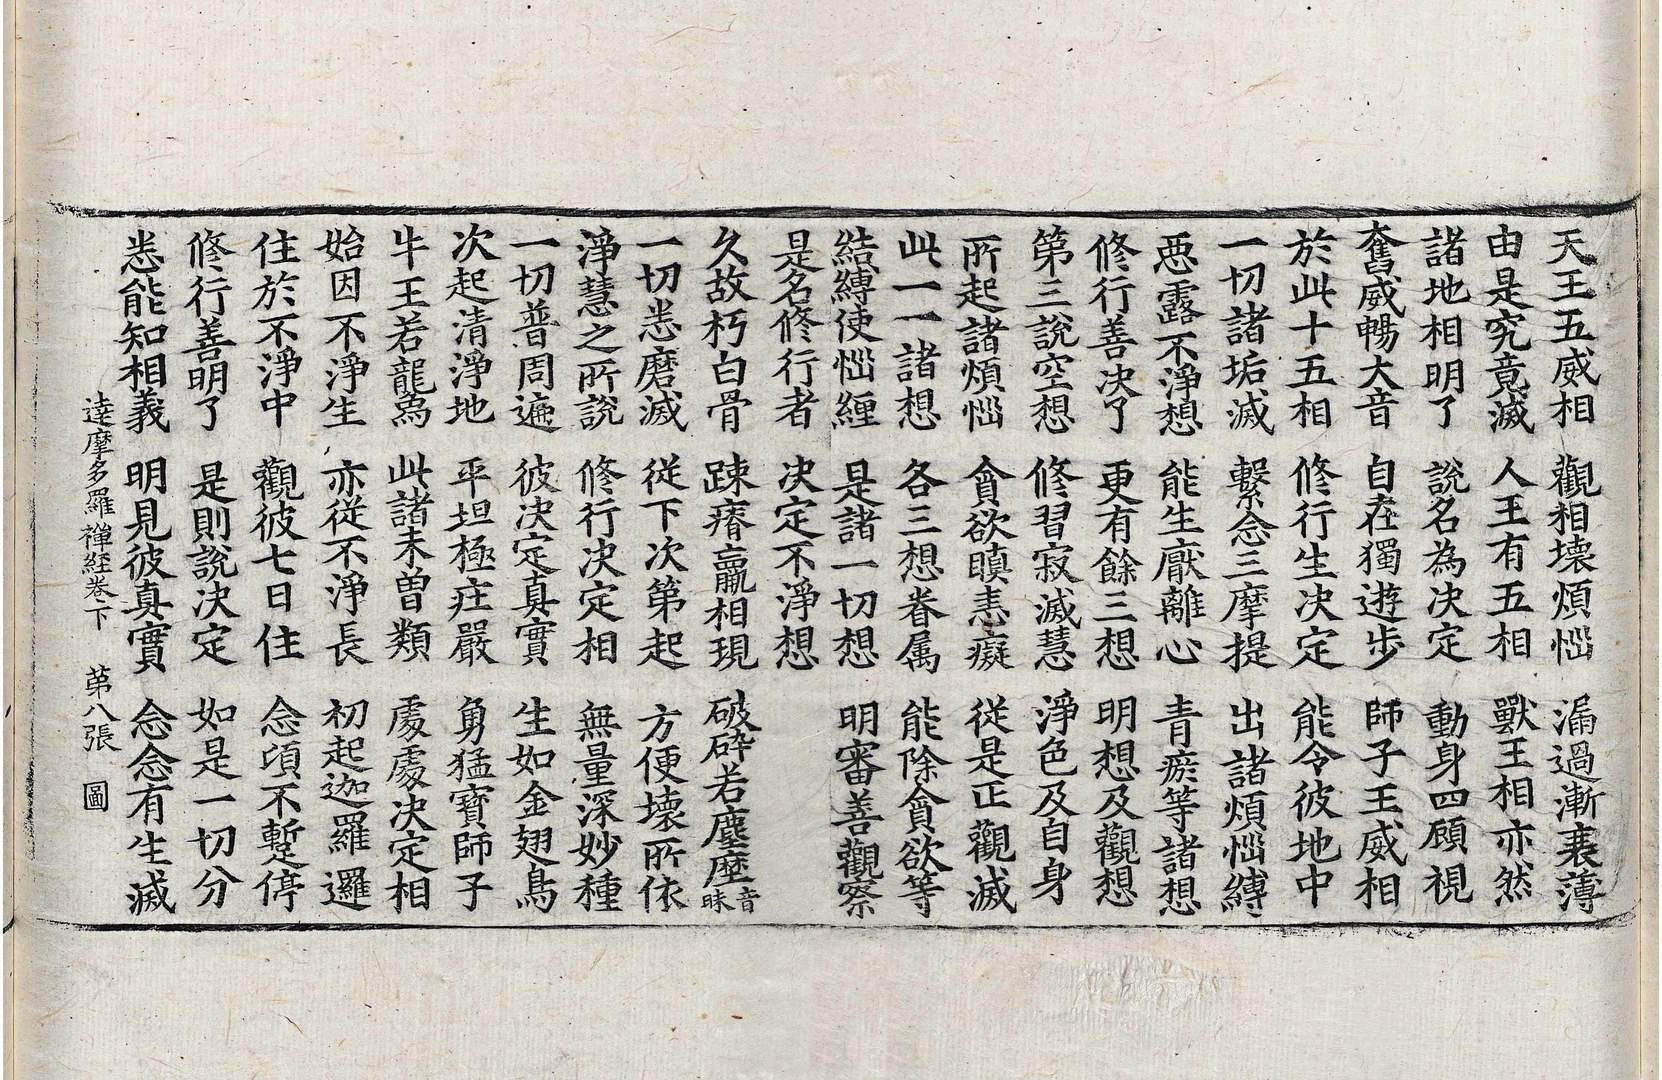 天王五威相　觀相壊煩惱　漏過漸衰薄
由是究竟滅　人王有五相　獸王相亦然
諸地相明了　說名為决定　動身四顧視
奮威暢大音　自在獨遊步　師子王威相
於此十五相　修行生决定　能令彼地中
一切諸垢滅　繫念三摩提　出諸煩惱縛
惡露不淨想　能生厭離心　青瘀等諸想
修行善决了　更有餘三想　明想及觀想
第三說空想　修習寂滅慧　淨色及自身
所起諸煩惱　貪欲瞋恚癡　從是正觀滅
此一一諸想　各三想眷属　能除貪欲等
結縛使惱纏　是諸一切想　明審善觀察
是名修行者　决定不淨想
久故朽白骨　踈瘠羸相現　破碎若塵𡋯音昧
一切悉磨滅　從下次第起　方便壊所依
淨慧之所說　修行决定相　無量深妙種
一切普周遍　彼决定真實　生如金翅鳥
次起清淨地　平坦極莊嚴　勇猛寶師子
牛王若龍爲　此諸未曽類　處處决定相
始因不淨生　亦從不淨長　初起迦羅邏
住於不淨中　觀彼七日住　念頃不蹔停
修行善明了　是則說决定　如是一切分
悉能知相義　明見彼真實　念念有生滅
達摩多羅禪経卷下　第八張　圖